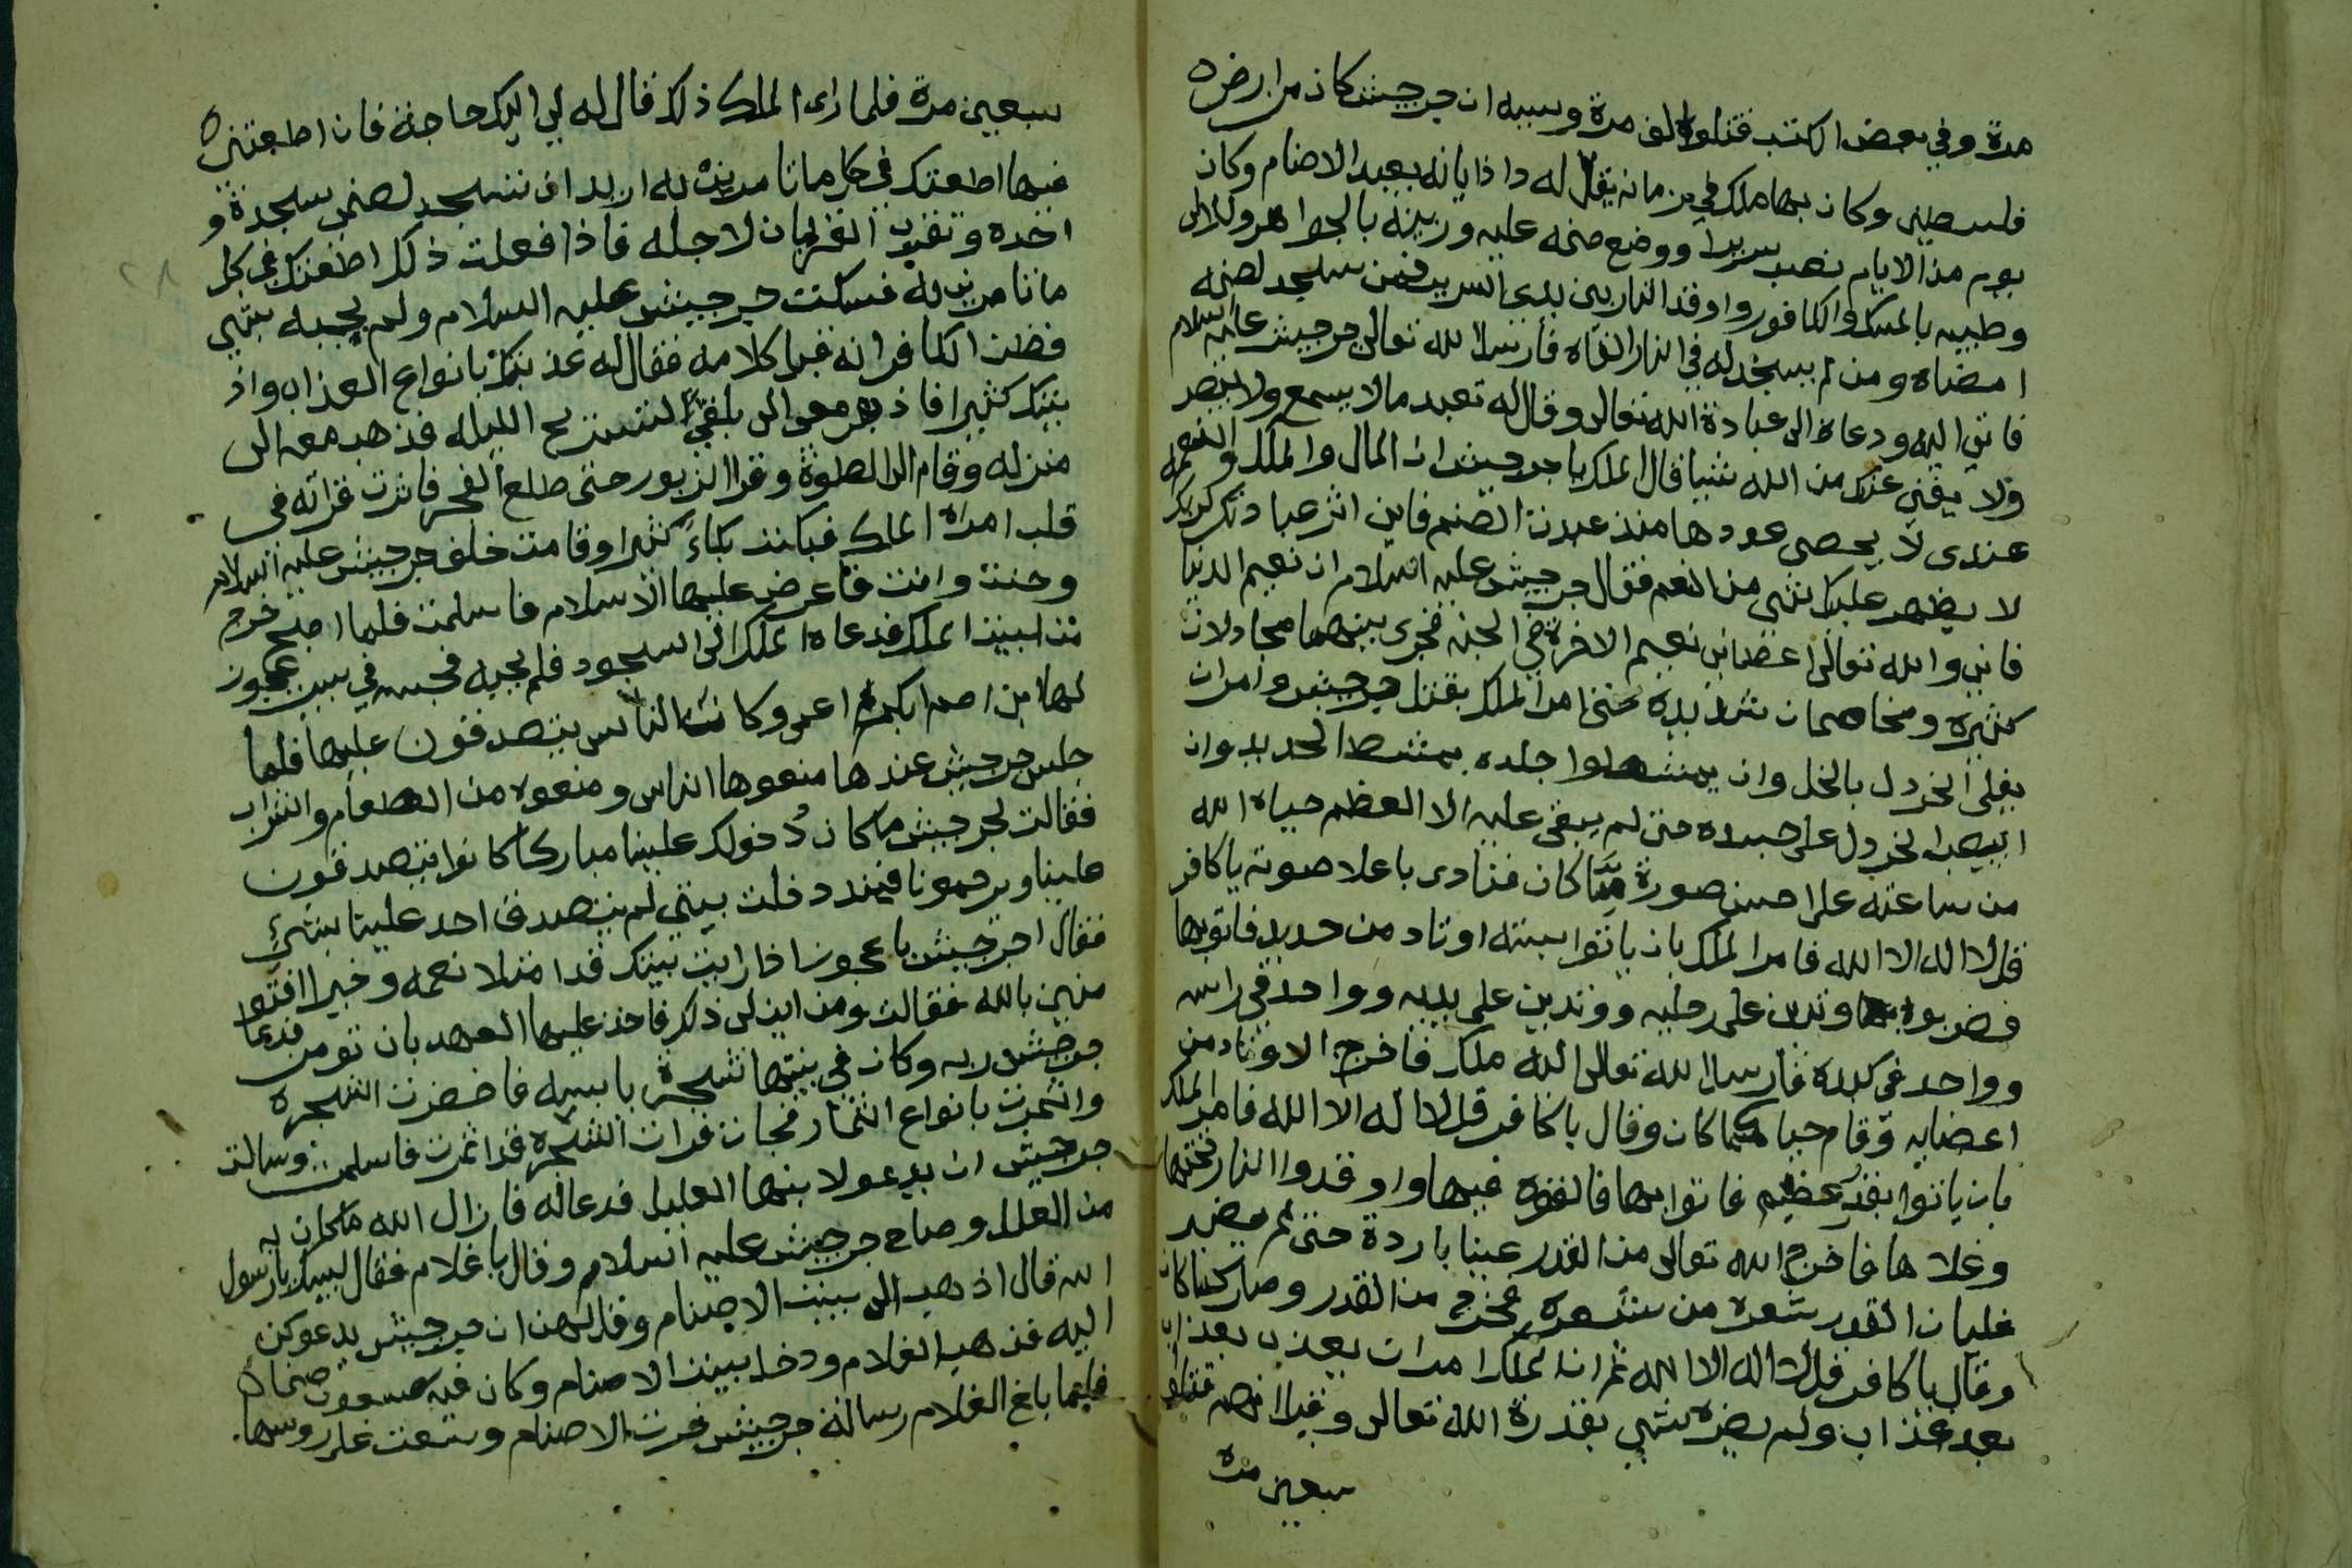 مدة وفي بعض الكتب قتلوه الف مرة وسببه ان جرجيش كان من ارض
فلسطين وكان بها ملك في زمانه يقال له داذيانه يعبد الاصنام وكان
يوم من الايام نصب سريرا ووضع صنمه عليه وزينه بالجواهر واللالى
وطيبه بالمسك والكافور واوقد النار بين يدى السرير فمن سجد لصنمه
امضاه ومن لم يسجد له في النار القاه فارسل الله تعالى جرجيش عليه السلام
فاتى اليه ودعاه الى عبادة الله تعالى وقال له تعبد مالا يسمع ولا يبصر
ولا يغني عنك من الله شيئا قال الملك يا جرجيش ان المال والملك والنعمة
عندى لا يحصى عددها منذ عبدت الصنم فاين اثر عبادتك لربك
لا يظهر عليك شي من النعم فقال جرجيش عليه السلام ان نعيم الدنيا
فاني والله تعالى اعطاني نعيم الاخرة في الجنه فجرى بينهما مجادلات
كثيرة ومخاصمات شديدة حتى امر الملك بقتل جرجيش وامر ان
يغلى الخردل بالخل وان يمشطوا جلده بمشط الحديد وان
يصب الخردل على جسده حتى لم يبقى عليه الا العظم حياه الله
من ساعته على احسن صورة مما كان فنادى باعلا صوته يا كافر
قل لا اله الا الله فامر الملك بان ياتوا بستة اوتاد من حديد فاتو بها
فضربوه بها وتدين على رجليه ووتدين على يديه وواحد في راسه
وواحد في كبده فارسل الله تعالى اليه ملك فاخرج الاوتاد من
اعضايه وقام حيا كما كان وقال يا كافر قل لا اله الا الله فامر الملك
بان ياتوا بقدر عظيم فاتوا بها فالقوه فيها واوقدوا النار تحتها
وغلا ها فاخرج الله تعالى من القدر عينا باردة حتى لم يضر
غليان القدر شعرة من شعره فخرج من القدر وصار كما كان
وقال يا كافر قل لا اله الا الله ثم ان الملك امر ان يعذب بعذاب
بعد عذاب ولم يضره شي بقدرة الله تعالى وقيل انهم قتلوه
سبعين مرة
سبعين مرة فلما راى الملك ذلك قال له لي اليك حاجة فان اطعتني
فيها اطعتك في كل ما تامرني به اريد ان تسجد لصنمى سجدة و
احده وتقرب القربان لاجله فاذا فعلت ذلك اطعتك في كل
ما تامرني به فسكت جرجيش عليه السلام ولم يجبه بشي
فظن الكافر انه قبل كلامه فقال له عذبتك بانواع العذاب واذ
يتك كثيرا فاذهب معى الى بلقي لتستريح الليله فذهب معه الى
منزله وقام الى الصلوة وقرا الزبور حتى طلع الفجر فاثرت قراته في
قلب امراة الملك فبكت بكاء كثيرا وقامت خلف جرجيش عليه السلام
وحنت وانت فاعرض عليها الاسلام فاسلمت فلما اصبح خرج
من بيت الملك فدعاه الملك الى السجود فلم يجبه فحبسه في بيت عجوز
لها ابن اصم ابكم اعمى وكانت الناس يتصدقون عليها فلما
جلس جرجيش عندها منعوها الناس ومنعوه من الطعام والشراب
فقالت لجرجيش ما كان دخولك علينا مباركا كانوا يتصدقون
علينا ويرحمونا فمنذ دخلت بيتى لم يتصدق احد علينا بشئ
فقال جرجيش يا عجوز اذا رايت بيتك قد امتلا نعمه وخيرا افتو
منين بالله فقالت ومن اين لى ذلك فاخذ عليها العهد بان تومن فدعا
جرجيش ربه وكان في بيتها شجرة يابسه فاخضرت الشجره
واثمرت بانواع الثمار فجات فرات الشجره قد اثمرت فاسلمت وسالت
جرجيش ان يدعو لابنها العليل فدعا له فازال الله ما كان به
من العلل وصاح جرجيش عليه السلام وقال يا غلام فقال لبيك يا رسول
الله قال اذهب الى بيت الاصنام وقل لهن ان جرجيش يدعوكن
اليه فذهب الغلام ودخل بيت الاصنام وكان فيه سبعون صنما
فلما بلغ الغلام رسالة جرجيش خرت الاصنام وسعت على روسها